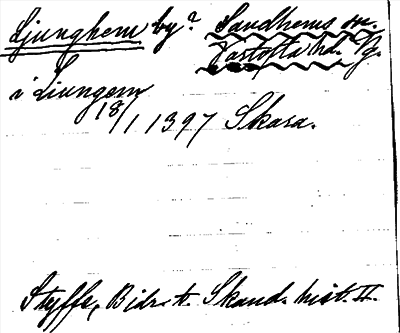 Ljunghem by? Sandhems sn.
Vartofta hd. Vg.
i Liungem
18/1 1397 Skara.
Styffe, Bidr. t. Skand. hist. II.